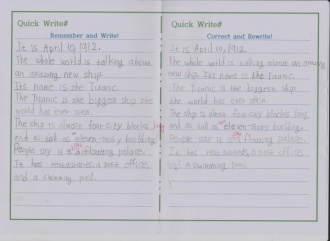 Quick Write#
Remember and Write!
It is April 10, 1912.
The whole world is talking about
an amazing new ship.
Its name is the Titanic.
The Titanic is the biggest ship the
world has ever seen.
The ship is almost four city blocks long
and as tall as an eleven story building.
People say it is a floating palace.
It has restaurants, a post office,
and a swimming pool.
Quick Write#
Correct and Rewrite!
It is April 10, 1912.
The whole world is talking about an amazing
new ship. Its name is the Titanic.
The Titanic is the biggest ship
the world has ever seen.
The ship is almost four city blocks long
and as tall as an eleven-story building.
People say it is a floating palace.
It has restaurants, a post office,
and a swimming pool.